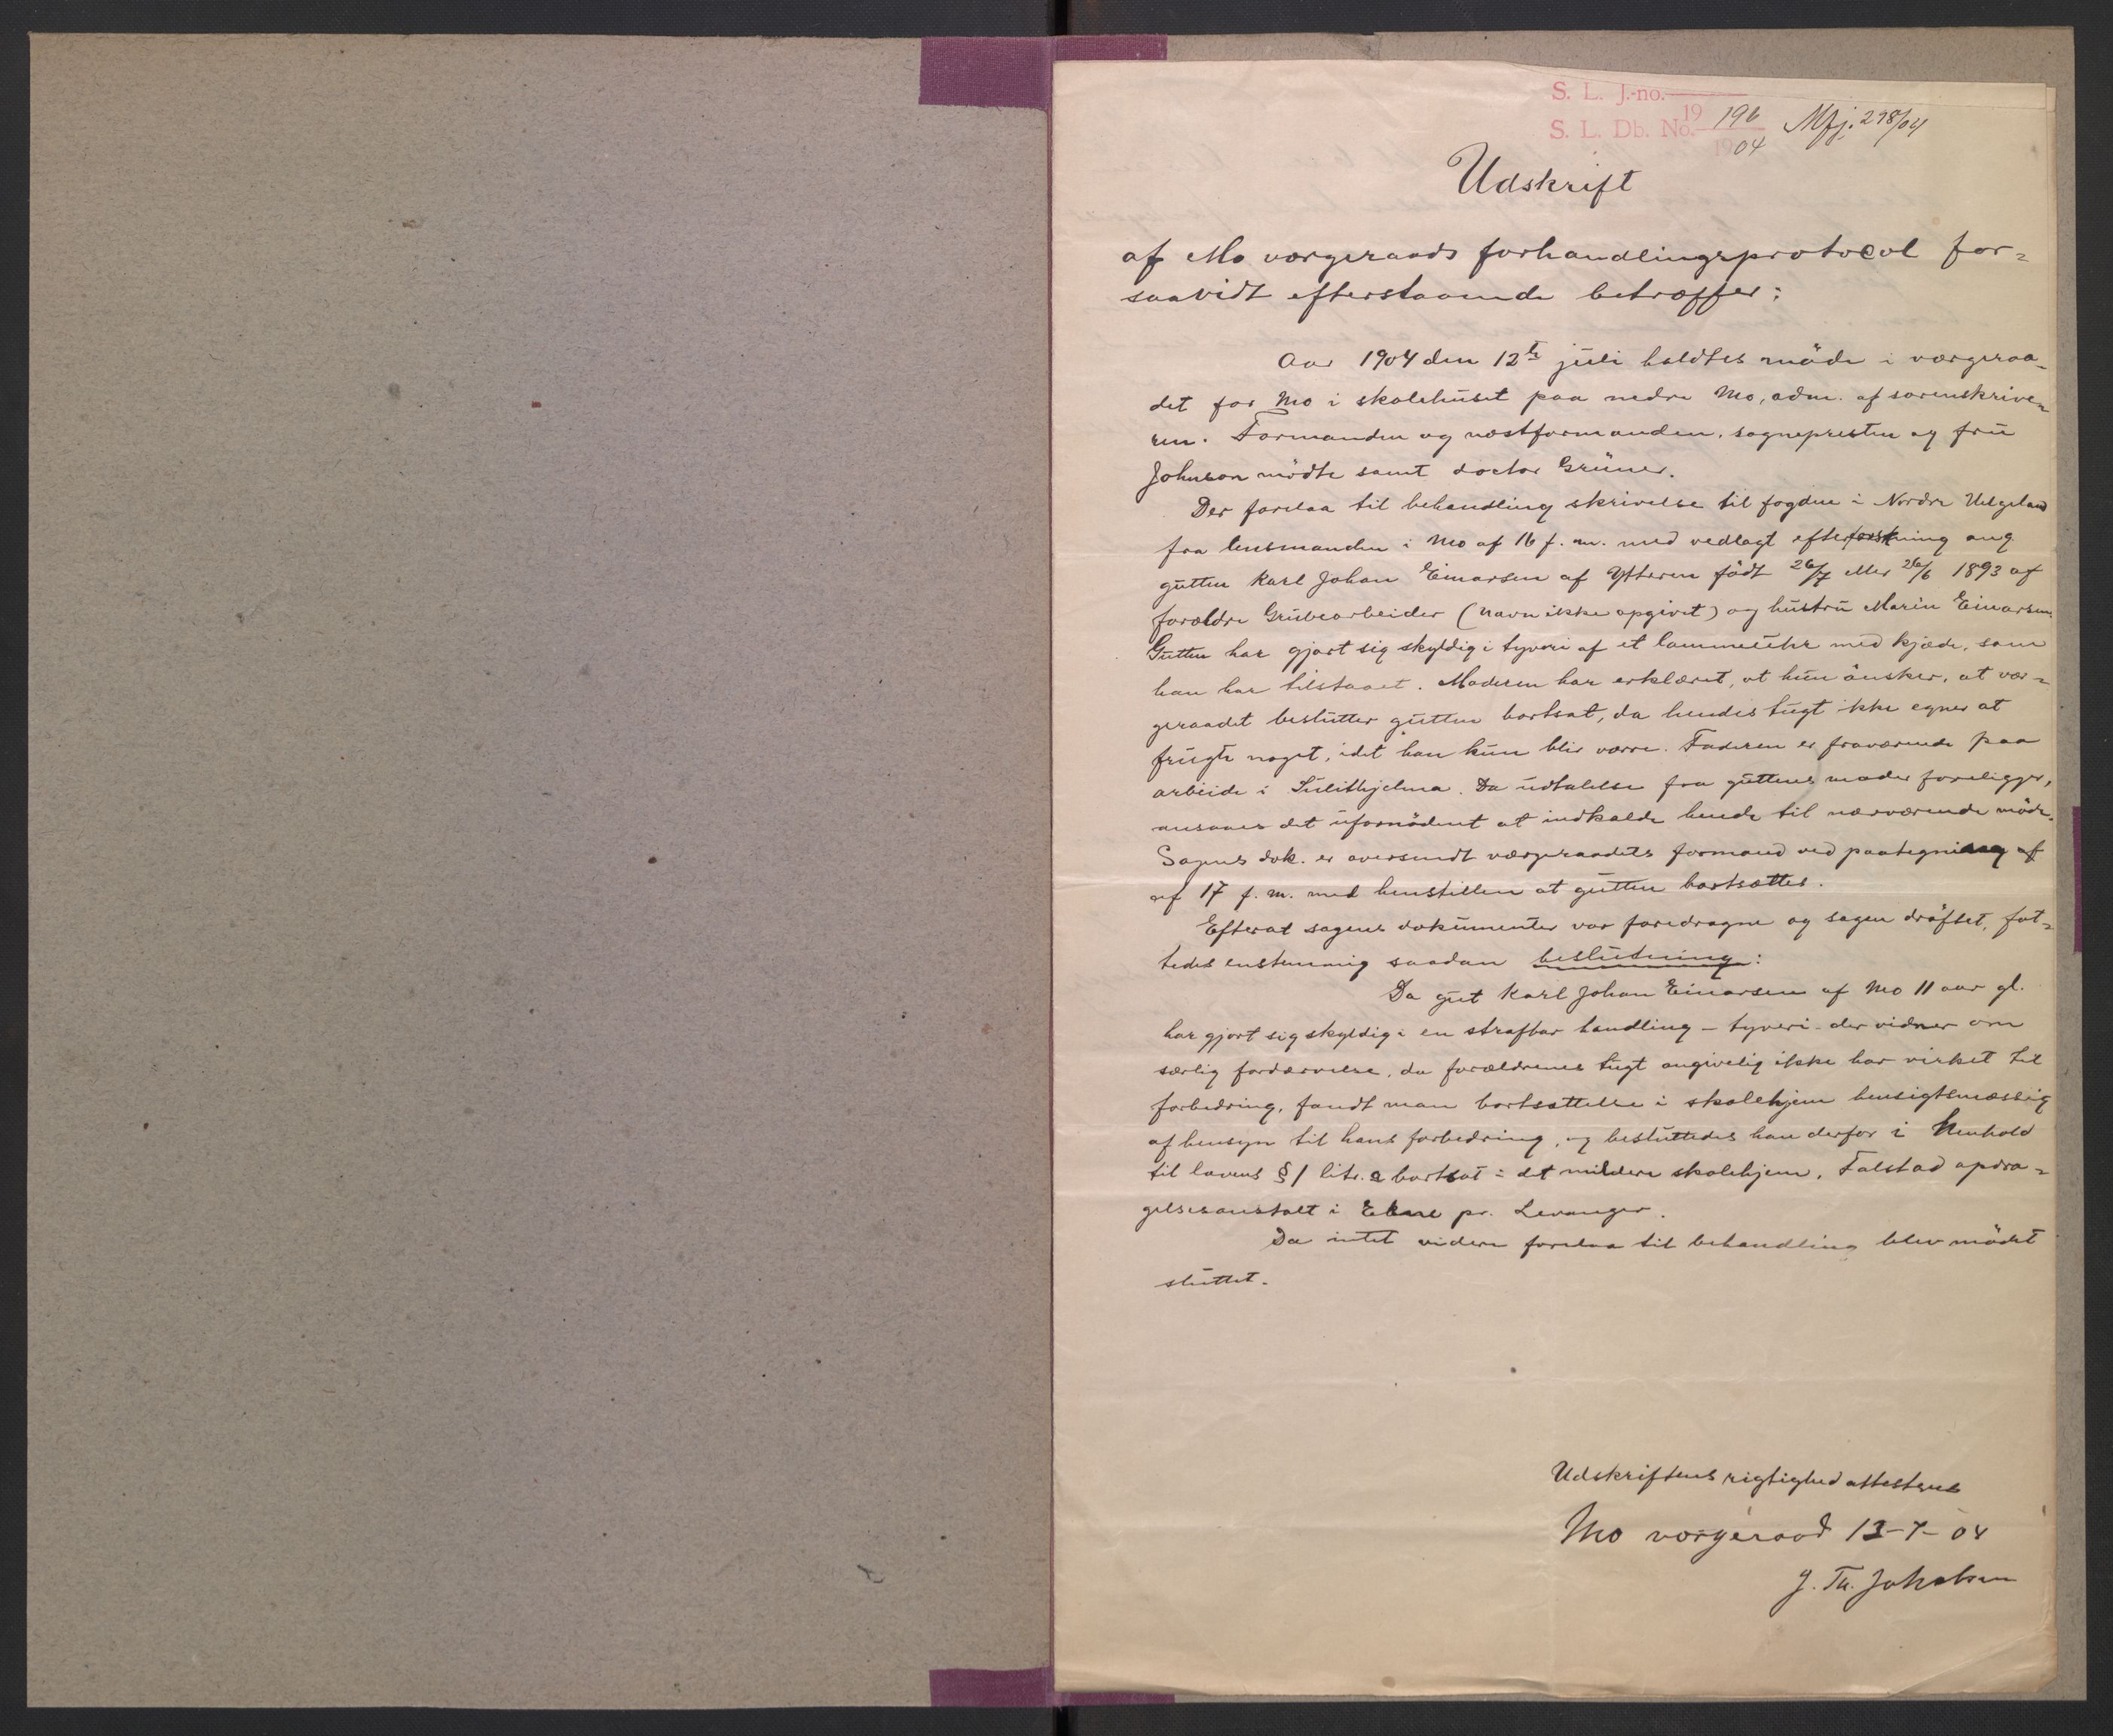 S. L. J.-no.
19
S. L. Db. No. 196
1904
Mfj. 298/04
Udskrift
af Mo værgeraads forhandlingsprotocol for=
saavidt efterstaaende betræffer:
Aar 1904 den 12te juli holdtes möde i værgeraa=
det for Mo i skolehuset paa nedre Mo, adm. af sorenskrive=
ren. Formanden og næstformanden, sogneprесten og fru
Johnson mödte samt doctor Grüner.
Der forelaa til behandling skrivelse til fogden i Nordre Helgeland
fra lensmanden i Mo af 16 f. m. med vedlagt efterforskning ang
gutten Karl Johan Einarsen af Ytteren födt 26/7 eller 26/6 1893 af
forældre Grubearbeider (navn ikke opgivet) og hustru Marin Einarsen.
Gutten har gjort sig skyldig i tyveri af et lommeuhr med kjæde, som
han har tilstaaet. Moderen har erklæret, at hun önsker, at vær=
geraadet beslutter gutten bortsat, da hendes tugt ikke egner at
frugte noget, idet han kun blir værre. Faderen er fraværende paa
arbeide i Sulithjelma. Da udtalelse fra guttens moder foreligger,
ansaaes det ufornödent at indkalde hende til nærværende möde.
Sagens dok. er oversendt værgeraadets formand ved paategning af
af 17 f. m. med henstillen at gutten bortsættes.
Efterat sagens dokumenter var foredragne og sagen dröftet, fat=
tedes enstemmig saadan beslutning:
Da gut Karl Johan Einarsen af Mo 11 aar gl.
har gjort sig skyldig i en strafbar handling - tyveri - der vidner om
særlig fordærvelse, da forældrenes tugt angivelig ikke har virket til
forbedring, fandt man bortsættelse i skolehjem hensigtsmæssig
af hensyn til hans forbedring, og besluttedes han derfor i Henhold
til lovens § 1 litr. a bortsat i det mildere skolehjem, Falstad opdra=
gelsesanstalt i Ekne pr. Levanger.
Da intet videre forelaa til behandling blev mödet
sluttet.
Udskriftens rigtighed attesteres
Mo værgeraad 13-7-04
J. Th. Jakobsen